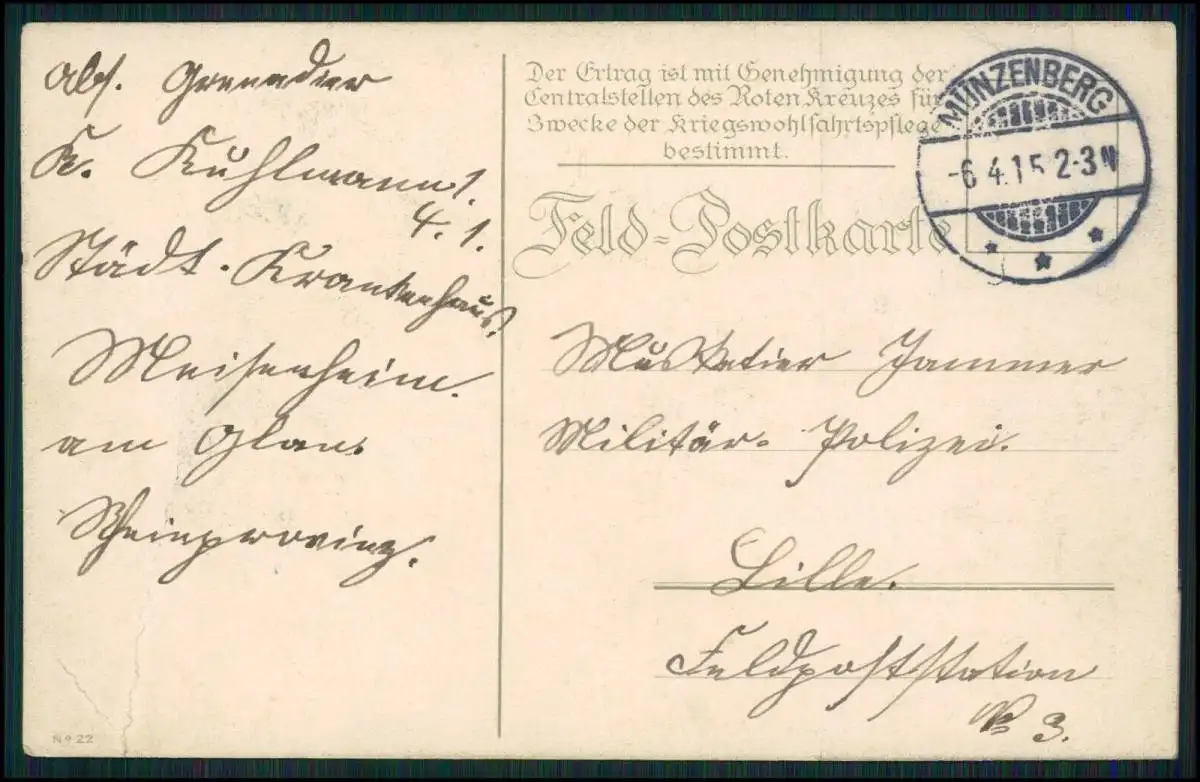 Abs. Grenadier
K. Kuhlmann 1.
4. 1.
Städt. Krankenhaus.
Meisenheim.
am Glan.
Rheinprovinz.
No 22
Der Ertrag ist mit Genehmigung der
Centralstellen des Roten Kreuzes für
Zwecke der Kriegswohlfahrtspflege
bestimmt.
Feld-Postkarte
MÜNZENBERG
-6.4.15 2-3 N
Musketier Jammer
Militär-Polizei.
Lille.
Feldpoststation
No 3.